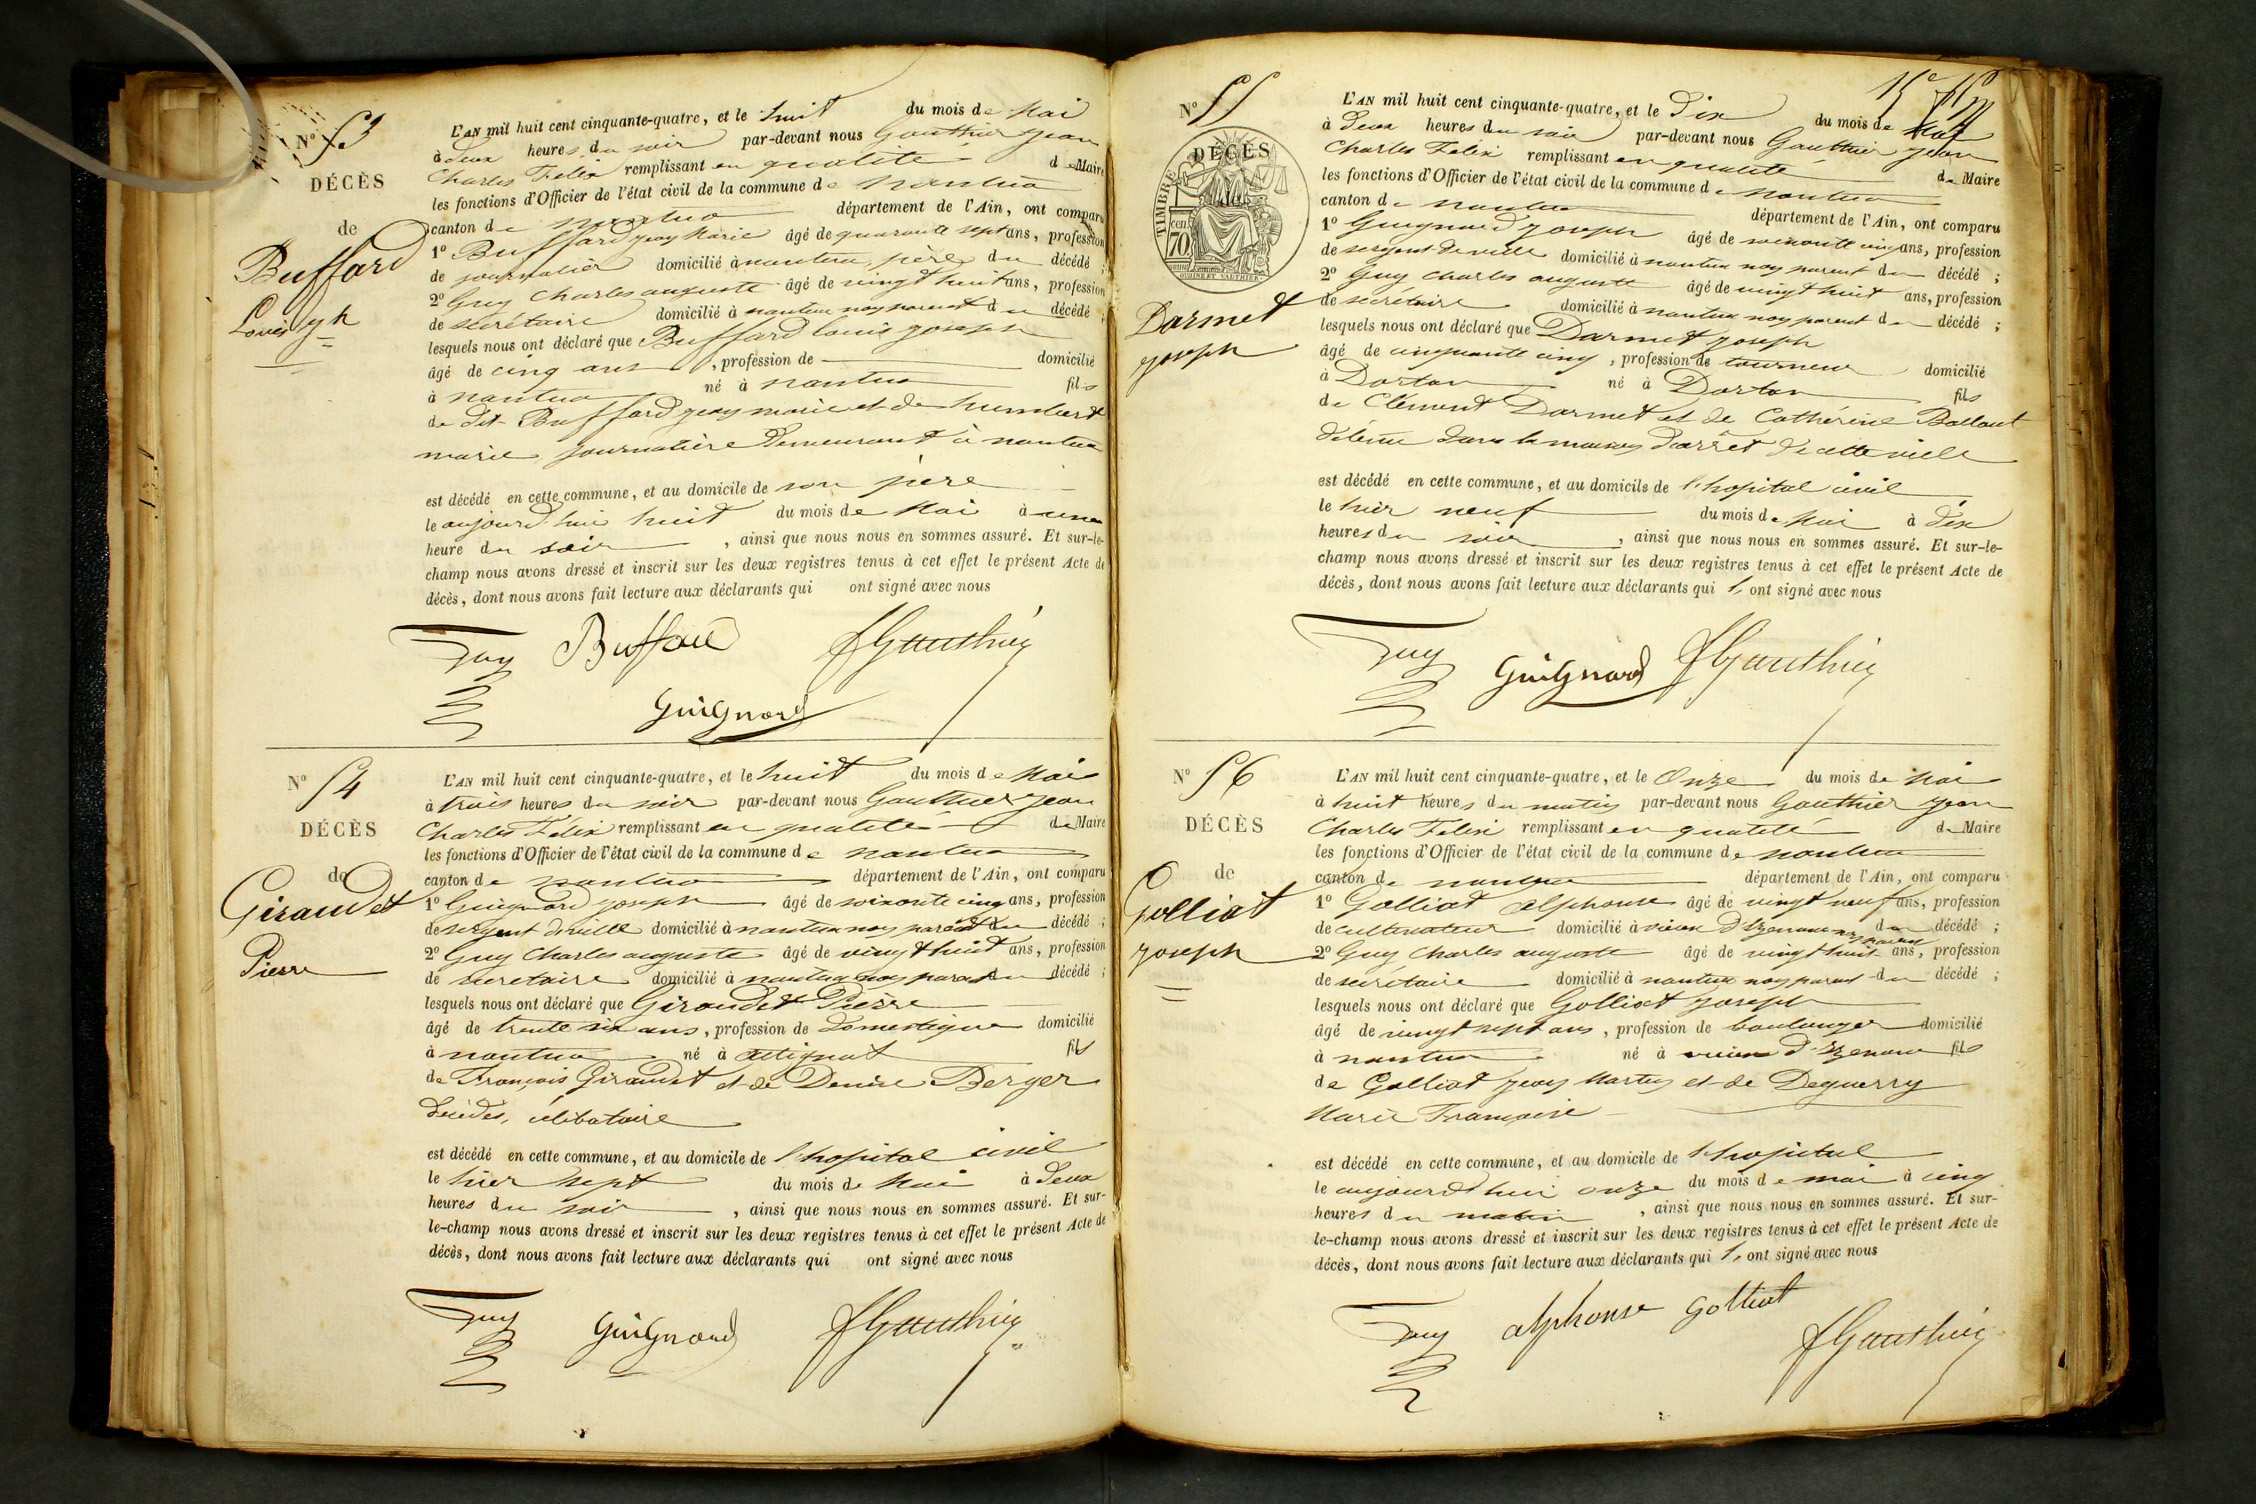 N° 53
DÉCÈS
de
Buffard
Louis Jh
L'AN mil huit cent cinquante-quatre, et le huit du mois de Mai
à deux heures du soir par-devant nous Gauthier Jean
Charles Félix remplissant en qualité de Maire
les fonctions d'Officier de l'état civil de la commune de nantua
canton de nantua département de l'Ain, ont comparu
1° Buffard jeay Marie âgé de quarante sept ans, profession
de journalier domicilié à nantua, père du décédé ;
2° Guy Charles auguste âgé de vingt huit ans, profession
de secrétaire domicilié à nantua noy parent du décédé ;
lesquels nous ont déclaré que Buffard louis joseph
âgé de cinq ans , profession de domicilié
à nantua né à nantua fils
de dit Buffard jeay marie et de humbert
marie journalière demeurant à nantua
est décédé en cette commune, et au domicile de son père
le aujourd'hui huit du mois de Mai à une
heure du soir , ainsi que nous nous en sommes assuré. Et sur-le-
champ nous avons dressé et inscrit sur les deux registres tenus à cet effet le présent Acte de
décès, dont nous avons fait lecture aux déclarants qui ont signé avec nous
Guy Buffard JGauthier
GuiGnard
N° 54
DÉCÈS
de
Giraudet
Pierre
L'AN mil huit cent cinquante-quatre, et le huit du mois de Mai
à trois heures du soir par-devant nous Gauthier Jean
Charles Félix remplissant en qualité de Maire
les fonctions d'Officier de l'état civil de la commune de nantua
canton de nantua département de l'Ain, ont comparu
1° Guignard joseph âgé de soixante cinq ans, profession
de sergent de ville domicilié à nantua noy parent du décédé ;
2° Guy Charles auguste âgé de vingt huit ans, profession
de secretaire domicilié à nantua noy parent du décédé ;
lesquels nous ont déclaré que Giraudet Pierre
âgé de trente six ans, profession de domestique domicilié
à nantua né à attignat fils
de François Giraudet et de Denise Berger
décédés, célibataire
est décédé en cette commune, et au domicile de l'hopital civil
le hier sept du mois de Mai à deux
heures du soir , ainsi que nous nous en sommes assuré. Et sur-
le-champ nous avons dressé et inscrit sur les deux registres tenus à cet effet le présent Acte de
décès, dont nous avons fait lecture aux déclarants qui ont signé avec nous
Guy GuiGnard JGauthier
N° 55
DÉCÈS
TIMBRE
70 cen
Darmet
joseph
L'AN mil huit cent cinquante-quatre, et le Dix du mois de Mai
à deux heures du soir par-devant nous Gauthier Jean
Charles Félix remplissant en qualité de Maire
les fonctions d'Officier de l'état civil de la commune de nantua
canton de nantua département de l'Ain, ont comparu
1° Guignard joseph âgé de soixante cinq ans, profession
de sergent de ville domicilié à nantua noy parent du décédé ;
2° Guy charles auguste âgé de vingt huit ans, profession
de secrétaire domicilié à nantua noy parent du décédé ;
lesquels nous ont déclaré que Darmet joseph
âgé de cinquante cinq , profession de tourneur domicilié
à Dortan né à Dortan fils
de Clément Darmet et de Cathérine Ballaut
détenu dans la maison d'arrêt de cette ville
est décédé en cette commune, et au domicile de l'hopital civil
le hier neuf du mois de Mai à dix
heures du soir , ainsi que nous nous en sommes assuré. Et sur-le-
champ nous avons dressé et inscrit sur les deux registres tenus à cet effet le présent Acte de
décès, dont nous avons fait lecture aux déclarants qui l' ont signé avec nous
Guy GuiGnard JGauthier
N° 56
DÉCÈS
de
Golliat
joseph
L'AN mil huit cent cinquante-quatre, et le Onze du mois de Mai
à huit heures du matin par-devant nous Gauthier Jean
Charles Félix remplissant en qualité de Maire
les fonctions d'Officier de l'état civil de la commune de nantua
canton de nantua département de l'Ain, ont comparu
1° Golliat Alphonse âgé de vingt neuf ans, profession
de cultivateur domicilié à vieux d'Izenave noy parent du décédé ;
2° Guy Charles auguste âgé de vingt huit ans, profession
de secrétaire domicilié à nantua noy parent du décédé ;
lesquels nous ont déclaré que Golliat joseph
âgé de vingt sept ans , profession de boulanger domicilié
à nantua né à vieux d'Izenave fils
de Golliat jeay Martin et de Deguerry
Marie Françoise
est décédé en cette commune, et au domicile de l'hopital
le aujourd'hui onze du mois de mai à cinq
heures du matin , ainsi que nous nous en sommes assuré. Et sur-
le-champ nous avons dressé et inscrit sur les deux registres tenus à cet effet le présent Acte de
décès, dont nous avons fait lecture aux déclarants qui l' ont signé avec nous
Guy alphonse Golliat
JGauthier